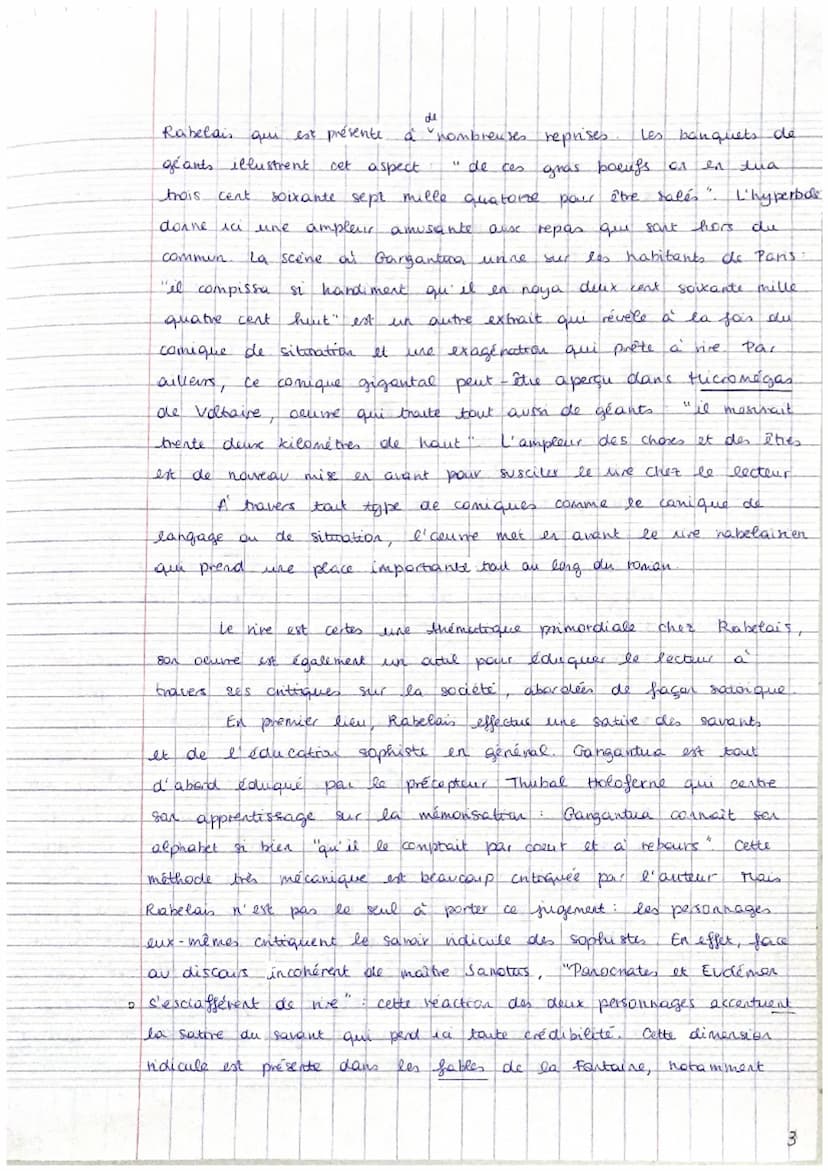 de
Rabelais qui est présente à nombreuses reprises. Les banquets de
géants illustrent cet aspect : "de ces gras boeufs on en tua
trois cent soixante sept mille quatorze pour être salés". L'hyperbole
donne ici une ampleur amusante aux repas qui sont hors du
commun. La scène où Gargantua urine sur les habitants de Paris :
"il compissa si hardiment qu'il en noya deux cent soixante mille
quatre cent huit" est un autre extrait qui révèle à la fois du
comique de situation et une exagération qui prête à rire. Par
ailleurs, ce comique gigantal peut-être aperçu dans Micromégas
de Voltaire, oeuvre qui traite tout aussi de géants : "il mesurait
trente deux kilomètres de haut". L'ampleur des choses et des êtres
est de nouveau mise en avant pour susciter le rire chez le lecteur.
A travers tout type de comiques comme le comique de
langage ou de situation, l'oeuvre met en avant le rire rabelaisien
qui prend une place importante tout au long du roman.
Le rire est certes une thématique primordiale chez Rabelais,
son oeuvre est également un outil pour éduquer le lecteur à
travers ses critiques sur la société, abordées de façon satirique.
En premier lieu, Rabelais effectue une satire des savants
et de l'éducation sophiste en général. Gargantua est tout
d'abord éduqué par le précepteur Thubal Holoferne qui centre
son apprentissage sur la mémorisation : Gargantua connaît son
alphabet si bien "qu'il le comptait par coeur et à rebours". Cette
méthode très mécanique est beaucoup critiquée par l'auteur. Mais
Rabelais n'est pas le seul à porter ce jugement : les personnages
eux-mêmes critiquent le savoir ridicule des sophistes. En effet, face
au discours incohérent de maître Janotus, "Ponocrates et Eudémon
s'esclaffèrent de rire" : cette réaction des deux personnages accentuent
la satire du savant qui perd ici toute crédibilité. Cette dimension
ridicule est présente dans les fables de la Fontaine, notamment
3